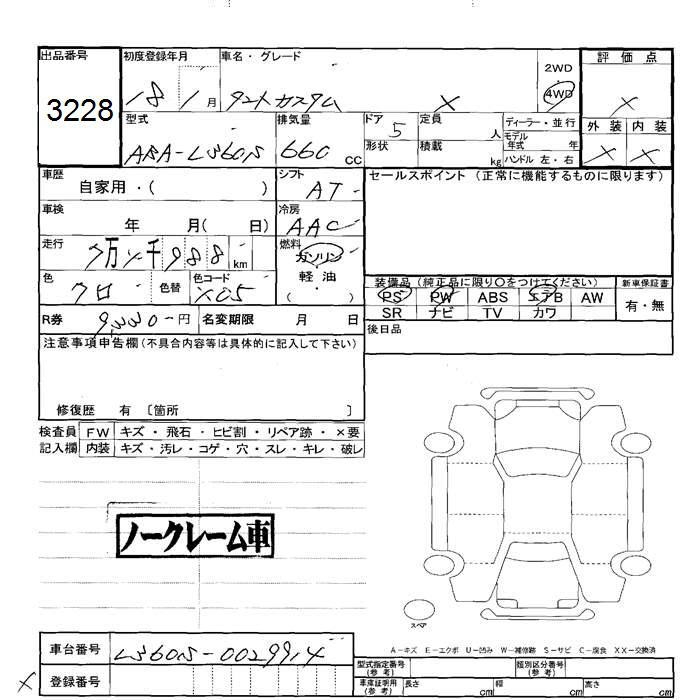 出品番号 初度登録年月 車名・グレード 2WD 評価点
3228 18 1月 タントカスタム X 4WD X
型式 排気量 ドア 5 定員 人 ディーラー・並行 外装 内装
ABA-L360S 660 CC 形状 積載 kg モデル年式 年 X X
ハンドル 左・右
車歴 自家用・( ) シフト AT セールスポイント (正常に機能するものに限ります)
車検 年 月( 日) 冷房 AAC
走行 km 燃料 ガソリン
軽油
色 クロ 色替 色コード X05 ( )
装備品 (純正品に限り○をつけてください) 新車保証書
PS PW ABS エアB AW 有・無
SR ナビ TV カワ
R券 円 名変期限 月 日 後日品
注意事項申告欄(不具合内容等は具体的に記入して下さい)
修復歴 有 〔箇所 〕
検査員 FW キズ・飛石・ヒビ割・リペア跡・×要
記入欄 内装 キズ・汚レ・コゲ・穴・スレ・キレ・破レ
ノークレーム車
スペア
A-キズ E-エクボ U-凹み W-補修跡 S-サビ C-腐食 XX-交換済
車台番号 型式指定番号(参考) 類別区分番号(参考)
X 登録番号 車庫証明用(参考) 長さ cm 幅 cm 高さ cm